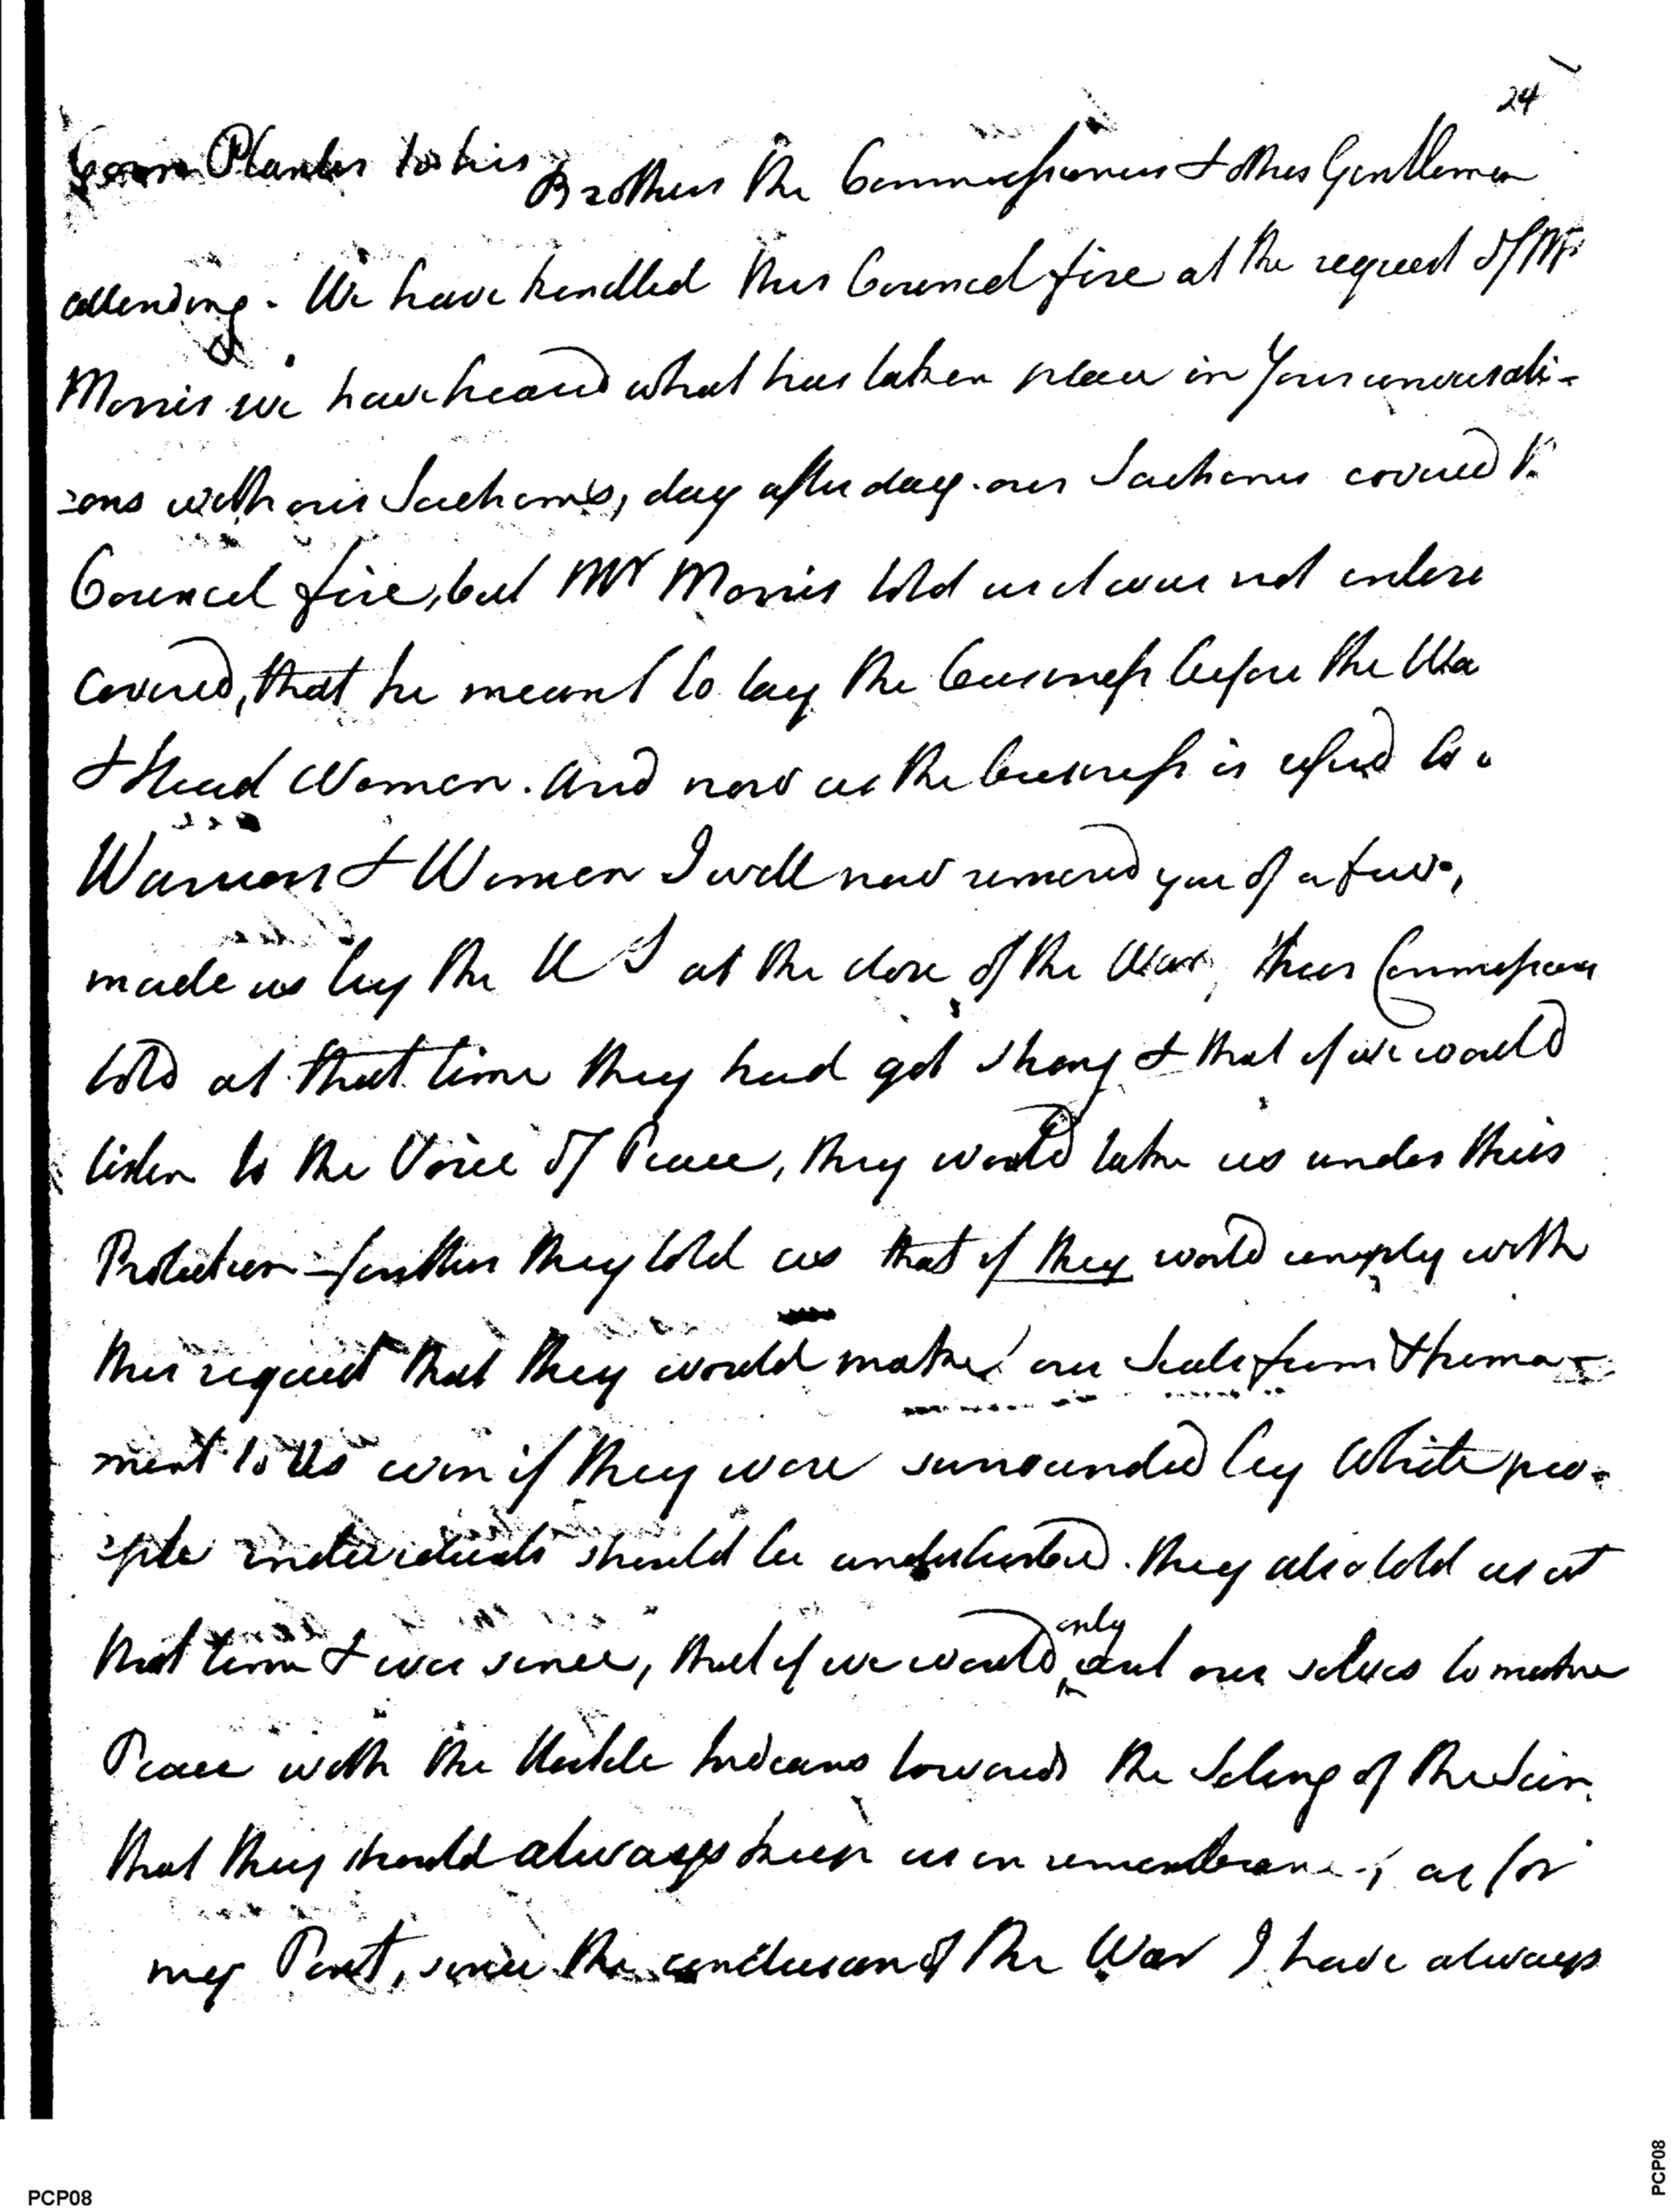 24
Corn Planter to his Brothers the Commissioners & other Gentlemen
attending. We have kendled this Councel fire at the request of Mr
Morris we have heard what has taken place in your conversati-
ions with our Sachems, day after day. our Sachems covered t
Councel fire, but Mr Morris told us it was not entire
covered, that he meant to lay the business before the Wa
& Head Women. And now as the business is
Warriors & Women I will now remind you of a few
made us by the U S at the close of the War, their Commissioners
told at that time they had got strong & that if we would
listen to the Voice of Peace, they would take us under their
Protection – further they told us that if they would comply with
this request that they would make our Seats firm & perma-
ment to us even if they were surrounded by White peo-
ople individuals should be undisturbed. they also told us at
that time & ever since, that if we would only exert our selves to make
Peace with the Hostile Indians towards the Seting of the Sun
that they should always keep us in remembrance, as for
my Part, since the conclusion of the War I have always
PCP08
PCP08